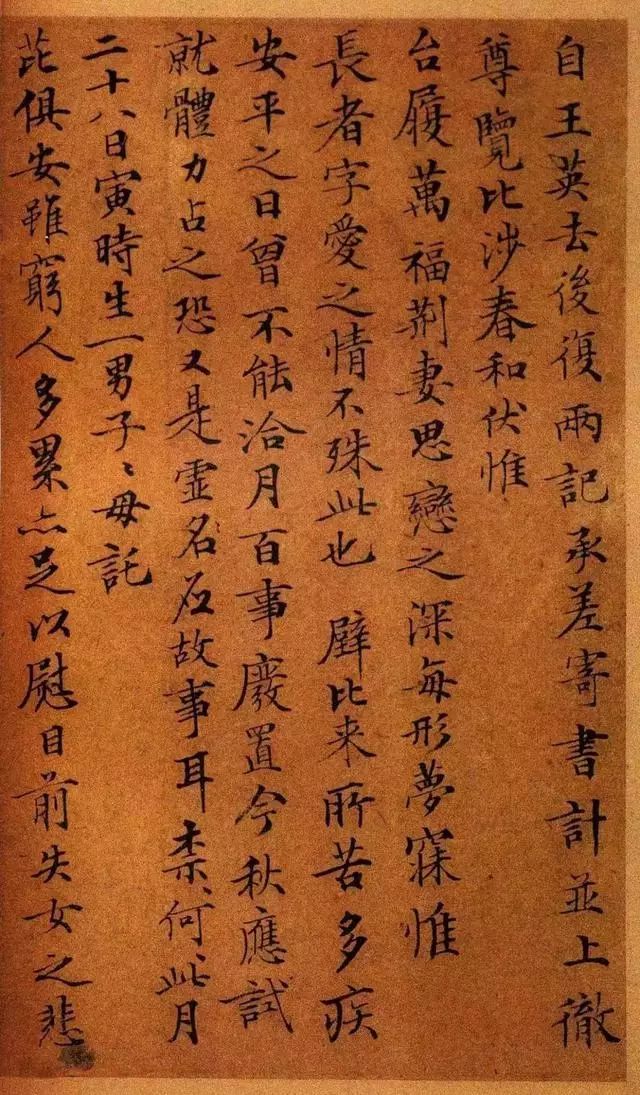 自王英去後復兩記承差寄書計並上徹
尊覽比涉春和伏惟
台履萬福荆妻思戀之深每形夢寐惟
長者字愛之情不殊此也 辟比来所苦多疾
安平之日曾不能浹月百事廢置今秋應試
就體力占之恐又是虛名應故事耳柰何〻此月
二十八日寅時生一男子〻母託
芘俱安雖窮人多累亦足以慰目前失女之悲